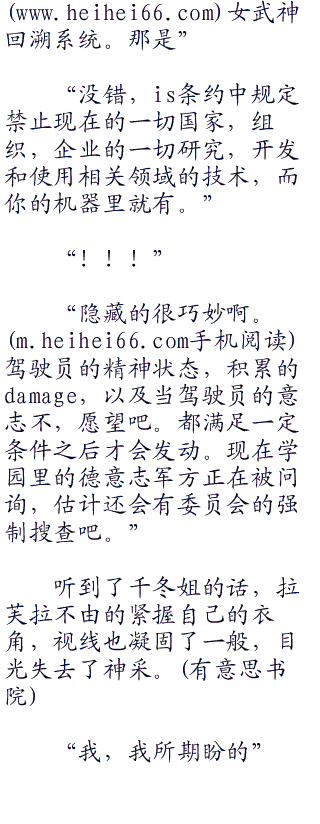 (www.heihei66.com)女武神
回溯系统。那是”
“没错，is条约中规定
禁止现在的一切国家，组
织，企业的一切研究，开发
和使用相关领域的技术，而
你的机器里就有。”
“！！！”
“隐藏的很巧妙啊。
(m.heihei66.com手机阅读)
驾驶员的精神状态，积累的
damage，以及当驾驶员的意
志不，愿望吧。都满足一定
条件之后才会发动。现在学
园里的德意志军方正在被问
询，估计还会有委员会的强
制搜查吧。”
听到了千冬姐的话，拉
芙拉不由的紧握自己的衣
角，视线也凝固了一般，目
光失去了神采。(有意思书
院)
“我，我所期盼的”